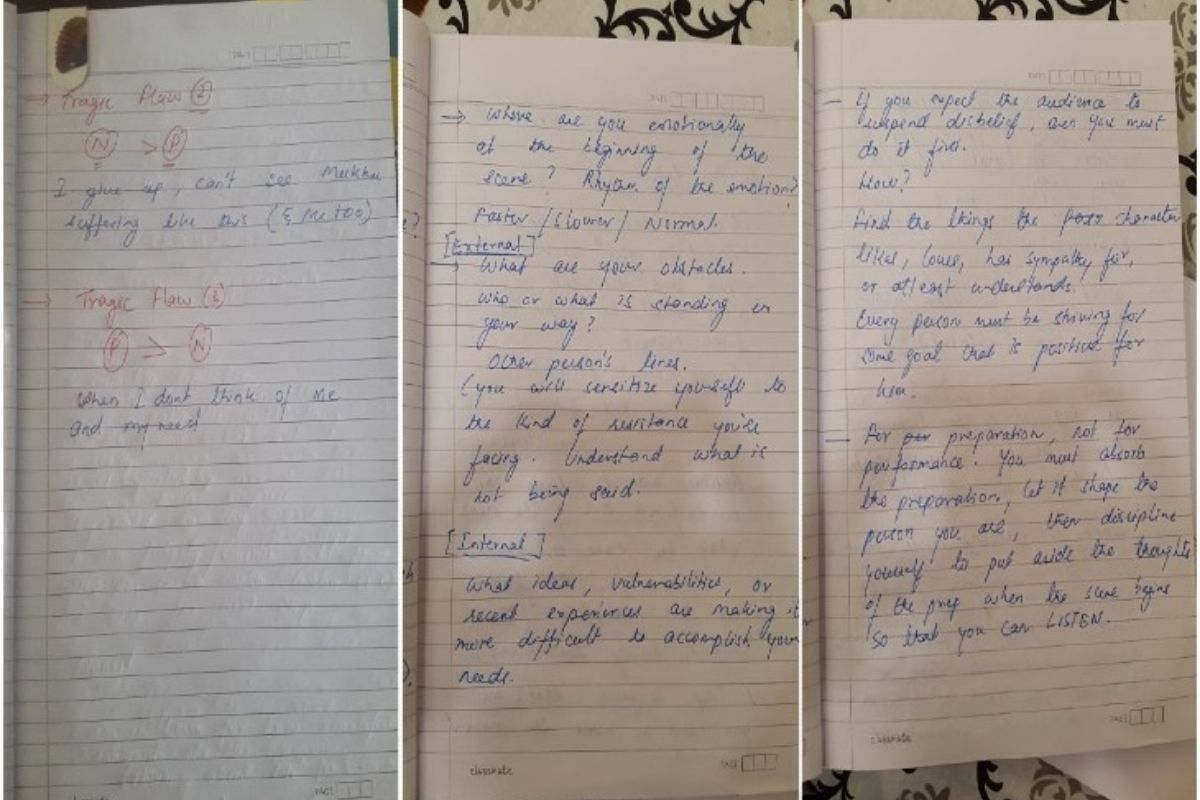 DATE
→ Tragic flaw (2)
(N) > (P)
I give up, can't see
suffering like this (& me too)
→ Tragic flaw
(P) > (N)
When I dont think of me
and my need
PAGE
classmate
DATE
→ Where are you emotionally
at the beginning of the
scene? Rhythm of the emotion?
Faster / Slower / Normal.
[External]
→ What are your obstacles.
who or what is standing in
your way?
Other person's lines.
(you will sensitize yourself to
the kind of resistance you're
facing. Understand what is
not being said.
[Internal]
What ideas, vulnerabilities, or
recent experiences are making it
more difficult to accomplish your
needs.
classmate
PAGE
DATE
– If you expect the audience to
suspend disbelief, you must
do it first.
How?
Find the things the character
likes, loves, has sympathy for,
or atleast understands.
Every person must be striving for
some goal that is positive for
him.
– For preparation, not for
performance. You must absorb
the preparation, let it shape the
person you are, then discipline
yourself to put aside the thoughts
of the prep when the scene begins
so that you can LISTEN.
PAGE
classmate